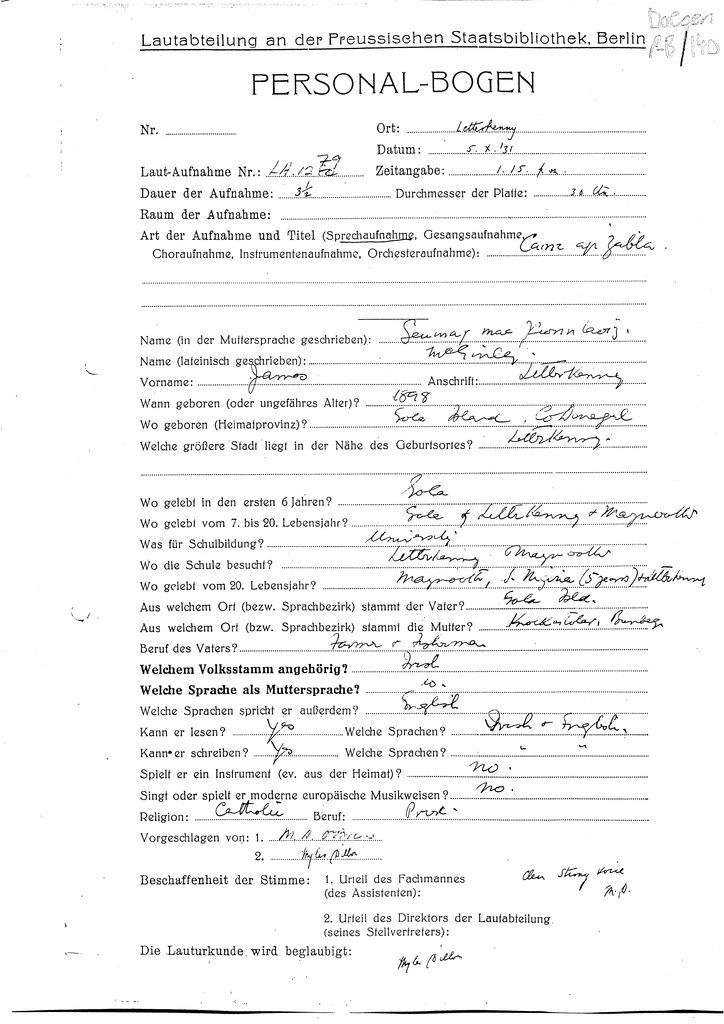 Doegen
RB/140
Lautabteilung an der Preussischen Staatsbibliothek, Berlin
PERSONAL-BOGEN
Nr. Ort: Letterkenny
Datum: 5. X. '31
Laut-Aufnahme Nr.: LA. 1279 Zeitangabe: 1. 15. p.m.
Dauer der Aufnahme: 3½ Durchmesser der Platte: 30 Cm.
Raum der Aufnahme:
Art der Aufnahme und Titel (Sprechaufnahme, Gesangsaufnahme,
Choraufnahme, Instrumentenaufnahme, Orchesteraufnahme):
Name (in der Muttersprache geschrieben): Seumas mac
Name (lateinisch geschrieben): McGinley.
Vorname: James Anschrift: Letterkenny
Wann geboren (oder ungefähres Alter)? 1898
Wo geboren (Heimatprovinz)? Gola Island. Co Donegal
Welche größere Stadt liegt in der Nähe des Geburtsortes? Letterkenny.
Wo gelebt in den ersten 6 Jahren? Gola
Wo gelebt vom 7. bis 20. Lebensjahr? Gola & Letterkenny + Maynooth
Was für Schulbildung? University
Wo die Schule besucht? Letterkenny Maynooth
Wo gelebt vom 20. Lebensjahr? Maynooth, S. Nigeria (5 years) + Letterkenny
Aus welchem Ort (bezw. Sprachbezirk) stammt der Vater? Gola Isld.
Aus welchem Ort (bezw. Sprachbezirk) stammt die Mutter? Knockastolar, Bunbeg
Beruf des Vaters? Farmer + Fisherman
Welchem Volksstamm angehörig? Irish
Welche Sprache als Muttersprache? do.
Welche Sprachen spricht er außerdem? English
Kann er lesen? Yes Welche Sprachen? Irish + English.
Kann er schreiben? Yes Welche Sprachen? " "
Spielt er ein Instrument (ev. aus der Heimat)? no.
Singt oder spielt er moderne europäische Musikweisen? no.
Religion: Catholic Beruf: Priest.
Vorgeschlagen von: 1. M. A. O'Brien
2. Myles Dillon
Beschaffenheit der Stimme: 1. Urteil des Fachmannes Clear Strong Voice
(des Assistenten): M.D.
2. Urteil des Direktors der Lautabteilung
(seines Stellvertreters):
Die Lauturkunde wird beglaubigt: Myles Dillon